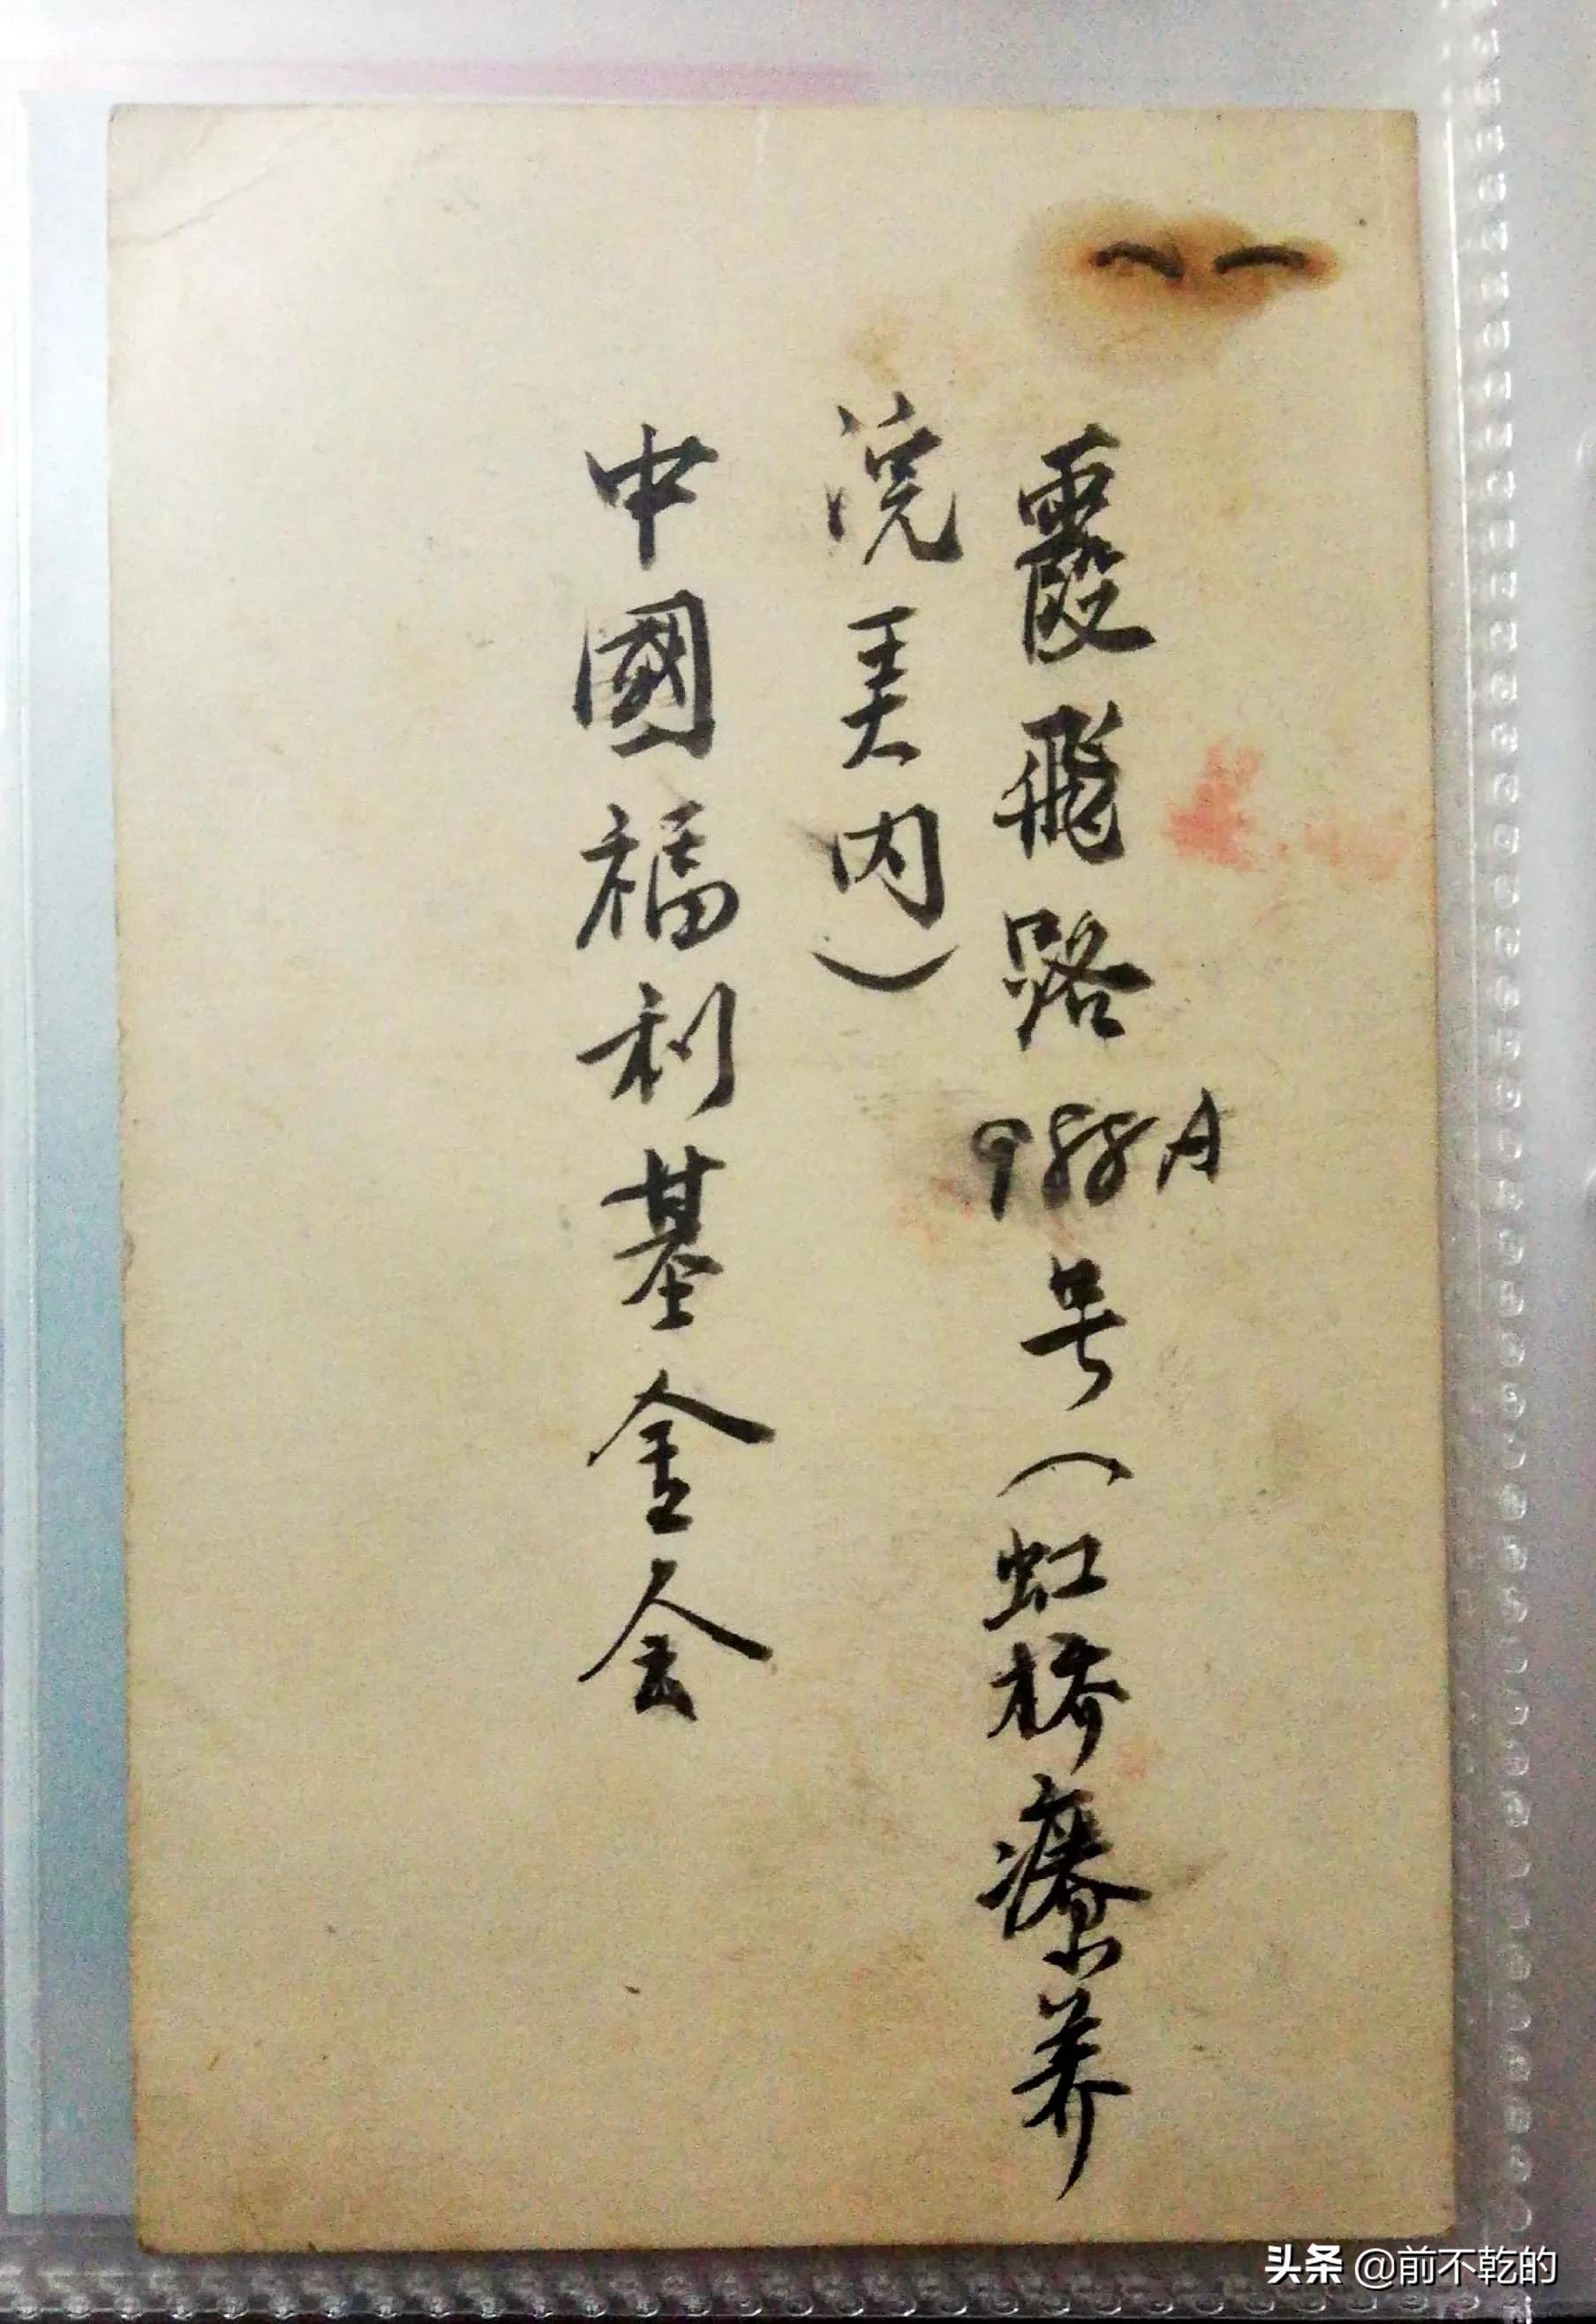 霞飛路988A号(虹桥療养
院弄内)
中國福利基金会
头条 @前不乾的